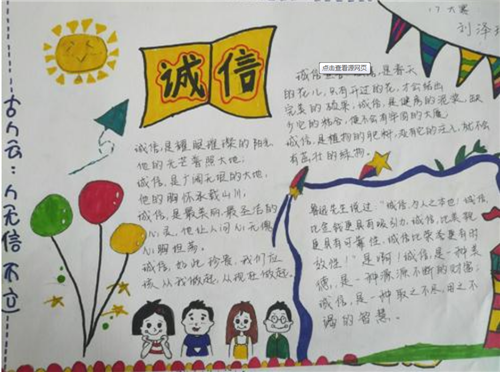 诚信
点击查看源网页
刘泽
古人云：人无信不立
诚信,是璀璨的阳光,
他的光芒普照大地.
诚信,是广阔无垠的大地,
他的胸怀承载山川,
诚信,是最美丽,最圣洁的
心灵,他让人间心无
胸坦荡.
诚信,如此珍贵,我们应
该从我做起,从现在做起.
诚信,是春天
的花儿,只有开过的花,才会结出
完美的硕果,诚信,是健康的泥浆,缺
少它的粘合,便不会有牢固的大厦,
诚信,是植物的肥料,没有它的注入,就不会
有茁壮的绿物.
鲁迅先生说过："诚信,为人之本也!诚信,
比金钱更具有吸引力,诚信,比美貌
更具有可靠性,诚信比荣誉更有时
效性!"是啊!诚信,是一种美
德,是一种源源不断的财富;
诚信,是一种取之不尽,用之不
竭的智慧.